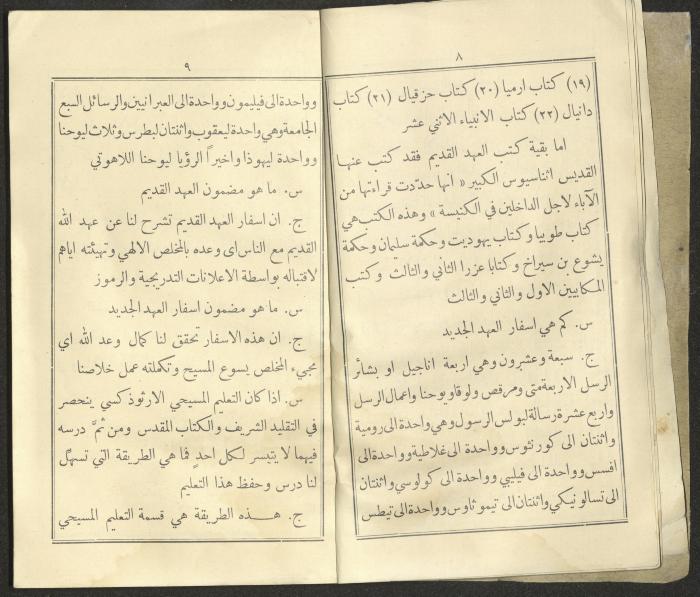 ٨
(١٩) كتاب ارميا (٢٠) كتاب حزقيال (٢١) كتاب
دانيال (٢٢) كتاب الانبياء الاثني عشر
اما بقية كتب العهد القديم فقد كتب عنها
القديس اثناسيوس الكبير « انها حدّدت قراءتها من
الآباء لاجل الداخلين في الكنيسة » وهذه الكتب هي
كتاب طوبيا وكتاب يهوديت وحكمة سليمان وحكمة
يشوع بن سيراخ وكتابا عزرا الثاني والثالث وكتب
المكابيين الاول والثاني والثالث
س. كم هي اسفار العهد الجديد
ج. سبعة وعشرون وهي اربعة اناجيل او بشائر
الرسل الاربعة متى ومرقص ولوقا ويوحنا واعمال الرسل
واربع عشرة رسالة لبولس الرسول وهي واحدة الى رومية
واثنتان الى كورنثوس وواحدة الى غلاطية وواحدة الى
افسس وواحدة الى فيليبي وواحدة الى كولوسي واثنتان
الى تسالونيكي واثنتان الى تيموثاوس وواحدة الى تيطس
٩
وواحدة الى فيليمون وواحدة الى العبرانيين والرسائل السبع
الجامعة وهي واحدة ليعقوب واثنتان لبطرس وثلاث ليوحنا
وواحدة ليهوذا واخيراً الرؤيا ليوحنا اللاهوتي
س. ما هو مضمون العهد القديم
ج. ان اسفار العهد القديم تشرح لنا عن عهد الله
القديم مع الناس اى وعده بالمخلص الالهي وتهيئته اياهم
لاقتباله بواسطة الاعلانات التدريجية والرموز
س. ما هو مضمون اسفار العهد الجديد
ج. ان هذه الاسفار تحقق لنا كمال وعد الله اي
مجيء المخلص يسوع المسيح وتكملته عمل خلاصنا
س. اذا كان التعليم المسيحي الارثوذكسي ينحصر
في التقليد الشريف والكتاب المقدس ومن ثمَّ درسه
فيهما لا يتيسر لكل احدٍ فما هي الطريقة التي تسهّل
لنا درس وحفظ هذا التعليم
ج. هذه الطريقة هي قسمة التعليم المسيحي